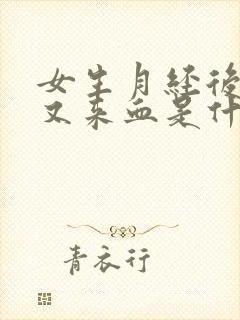 女生月经後
又来血是什
青衣行